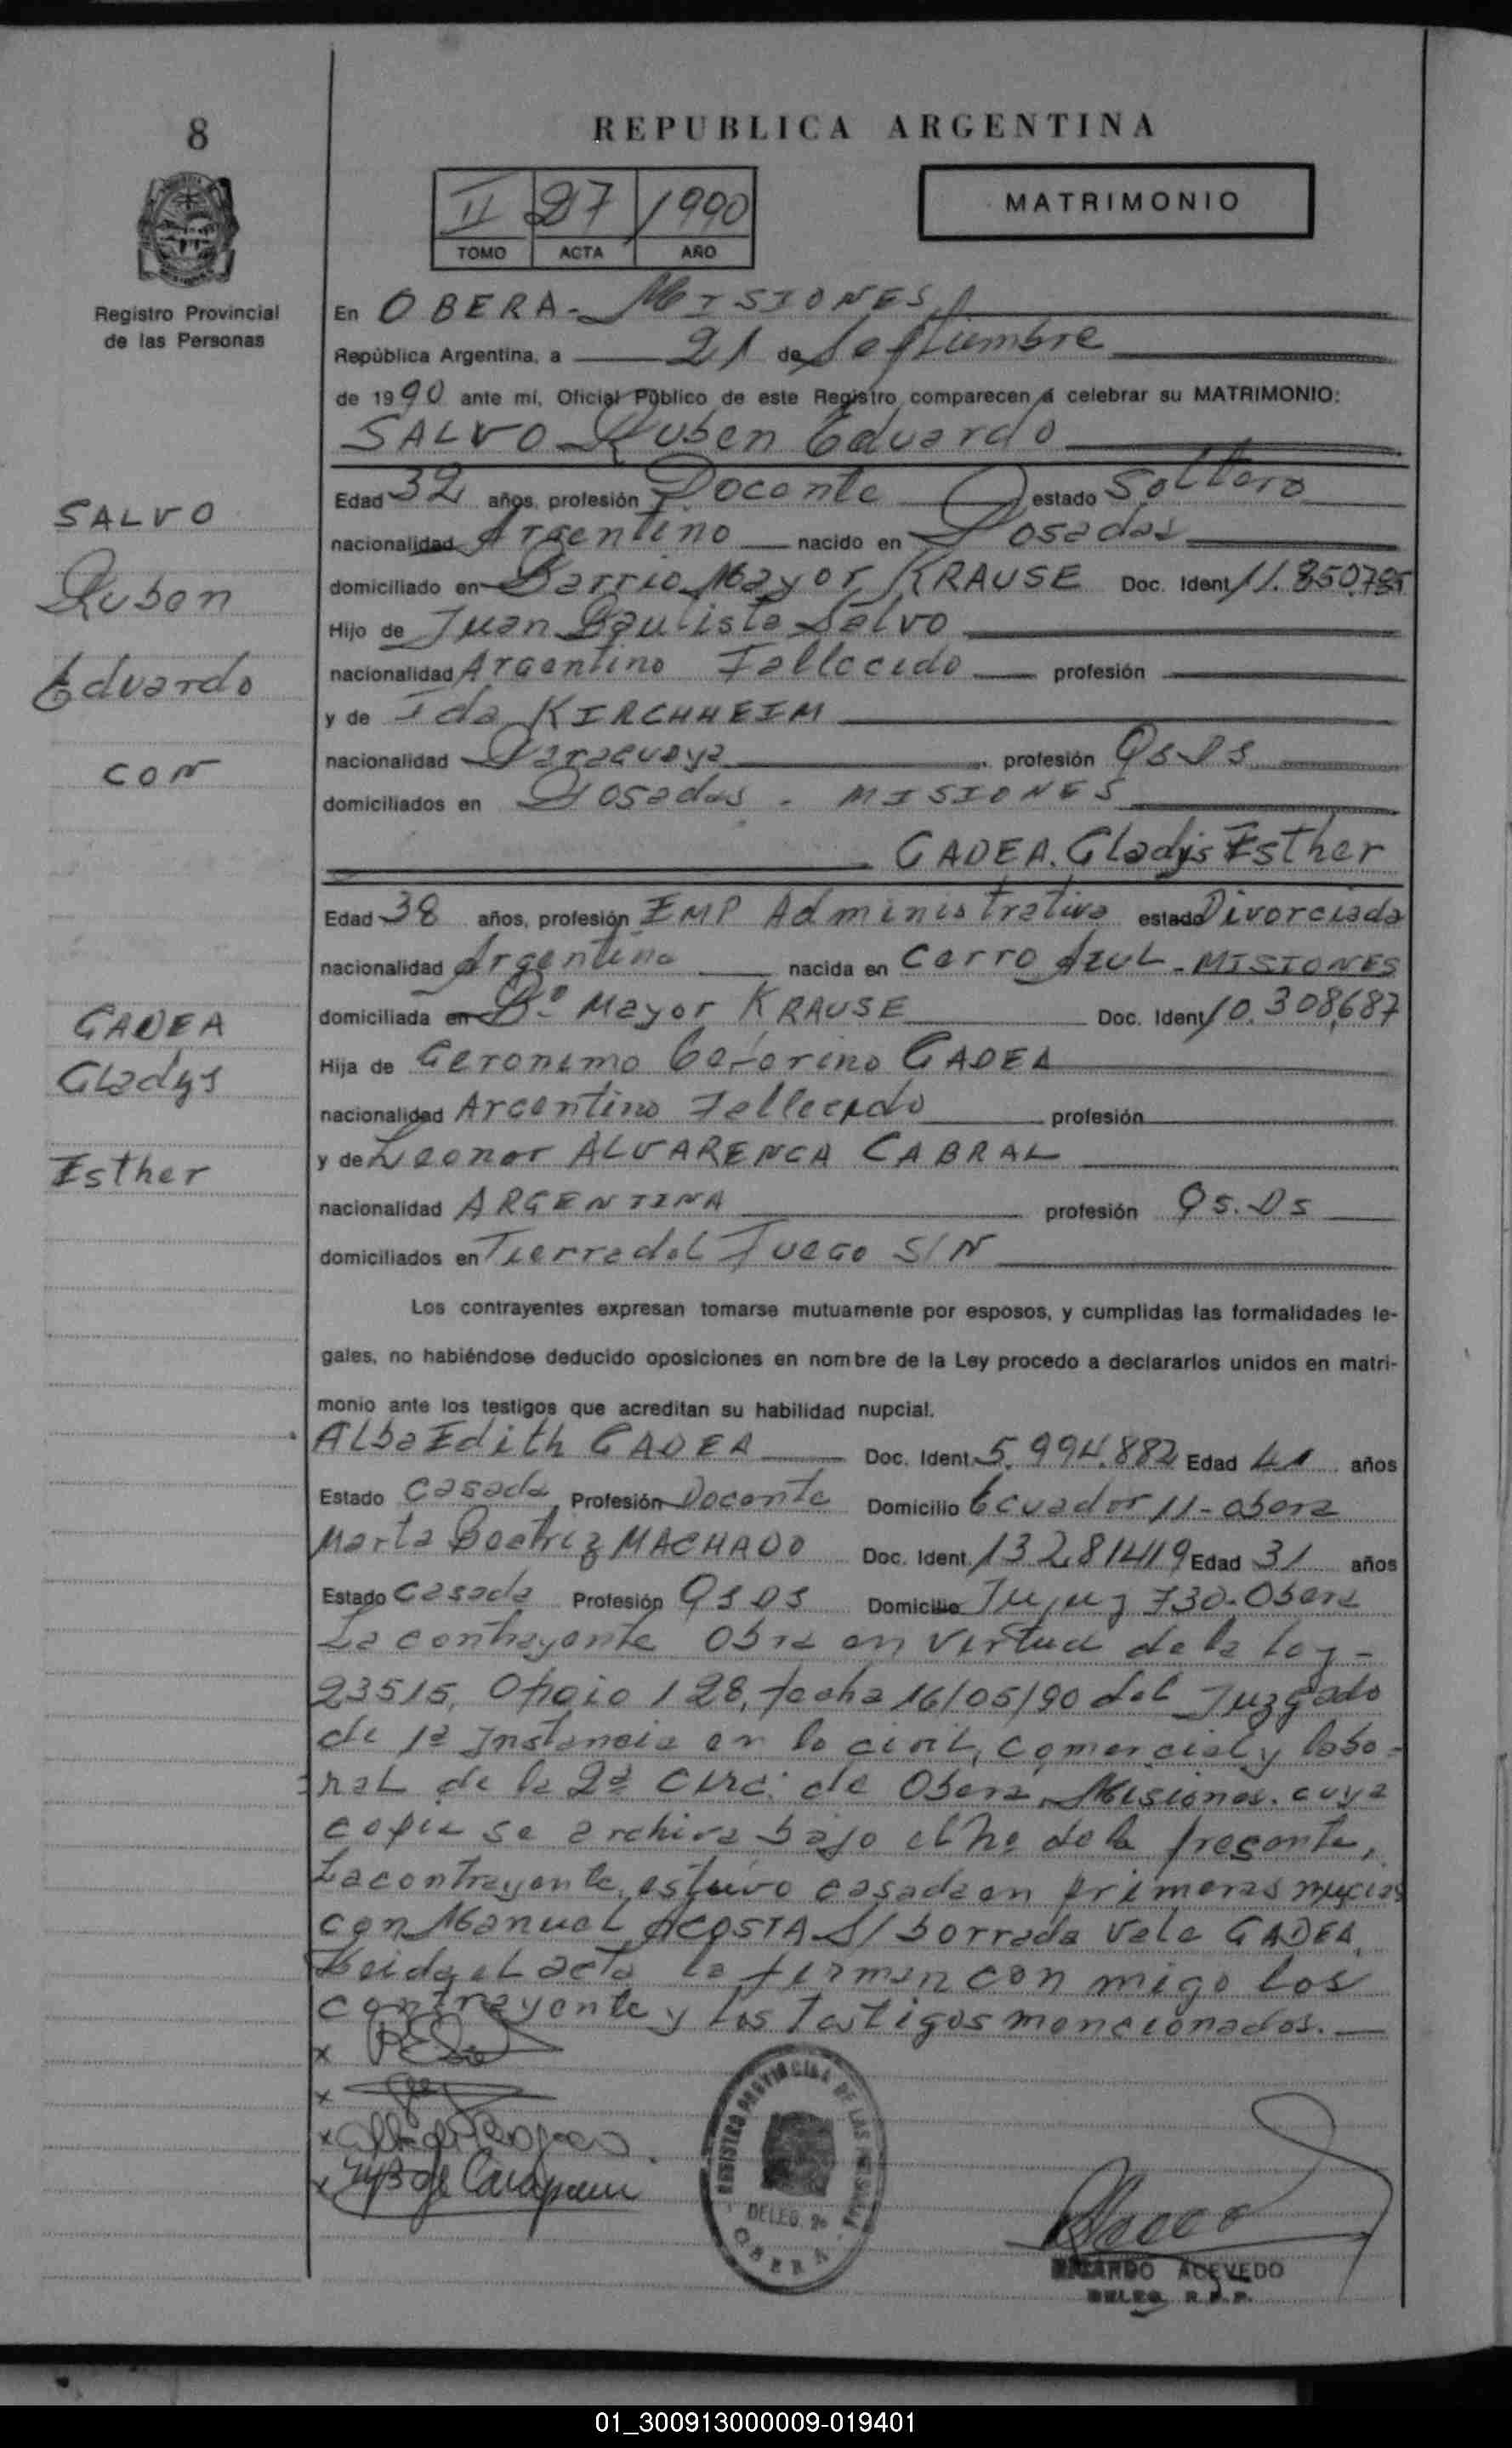 8
REPUBLICA ARGENTINA
II 27 1990
TOMO ACTA AÑO
MATRIMONIO
Registro Provincial
de las Personas
En OBERA - MISIONES
República Argentina, a 21 de Septiembre
de 1990 ante mí, Oficial Público de este Registro comparecen a celebrar su MATRIMONIO:
SALVO Ruben Eduardo
Edad 32 años, profesión Docente estado Soltero
nacionalidad Argentino nacido en Posadas
domiciliado en Barrio Mayor KRAUSE Doc. Ident 11.850.785
Hijo de Juan Bautista Salvo
nacionalidad Argentino Fallecido profesión
y de Ida KIRCHHEIM
nacionalidad Paraguaya profesión Qs Ds
domiciliados en Posadas - MISIONES
SALVO
Ruben
Eduardo
con
GADEA
Gladys
Esther
GADEA. Gladys Esther
Edad 38 años, profesión EMP Administrativa estado Divorciada
nacionalidad Argentina nacida en Cerro Azul - MISIONES
domiciliada en Bº Mayor KRAUSE Doc. Ident 10.308,687
Hija de Geronimo Ceferino GADEA
nacionalidad Argentino Fallecido profesión
y de Leonor ALVARENGA CABRAL
nacionalidad ARGENTINA profesión Qs. Ds
domiciliados en Tierra del Fuego S/N
Los contrayentes expresan tomarse mutuamente por esposos, y cumplidas las formalidades le-
gales, no habiéndose deducido oposiciones en nombre de la Ley procedo a declararlos unidos en matri-
monio ante los testigos que acreditan su habilidad nupcial.
Alba Edith GADEA Doc. Ident. 5.994.882 Edad 41 años
Estado Casada Profesión Docente Domicilio Ecuador 11 - Obera
Marta Beatriz MACHADO Doc. Ident. 13281419 Edad 31 años
Estado Casada Profesión Qs Ds Domicilio Jujuy 730 - Obera
La contrayente Obra en virtud de la Ley -
23515, Oficio 128, fecha 16/05/90 del Juzgado
de 1ª Instancia en lo civil, comercial y labo-
ral de la 2ª Circ. de Obera, Misiones. cuya
copia se archiva bajo el nº de la presente,
La contrayente, estuvo casada en primeras nupcias
con Manuel ACOSTA S/ borrada Vale GADEA.
Leida el acta la firman con migo los
contrayente y los testigos mencionados.
x
x
x
x
REGISTRO PROVINCIAL DE LAS PERSONAS
DELEG. 2ª
OBERA
RICARDO ACEVEDO
DELEG. R.P.P.
01_300913000009-019401